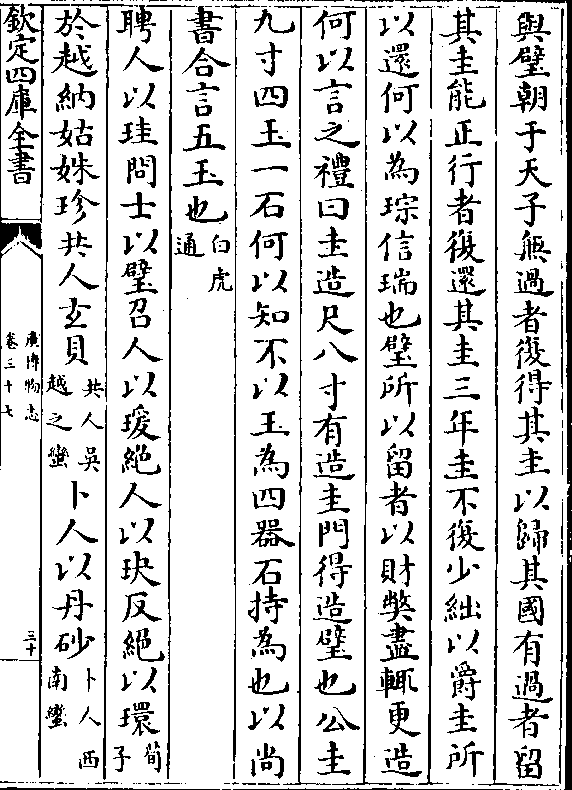 與璧朝于天子無過者復得其圭以歸其國有過者留
其圭能正行者復還其圭三年圭不復少絀以爵圭所
以還何以為琮信瑞也璧所以留者以財幣盡輙更造
何以言之禮曰圭造尺八寸有造圭門得造璧也公圭
九寸四玉一石何以知不以玉為四器石持為也以尚
書合言五玉也白虎通
聘人以珪問士以璧召人以瑗絕人以玦反絕以環荀子
於越納姑妹珍共人玄貝共人吳越之蠻卜人以丹砂卜人西南蠻
欽定四庫全書
廣博物志
卷三十七
三十